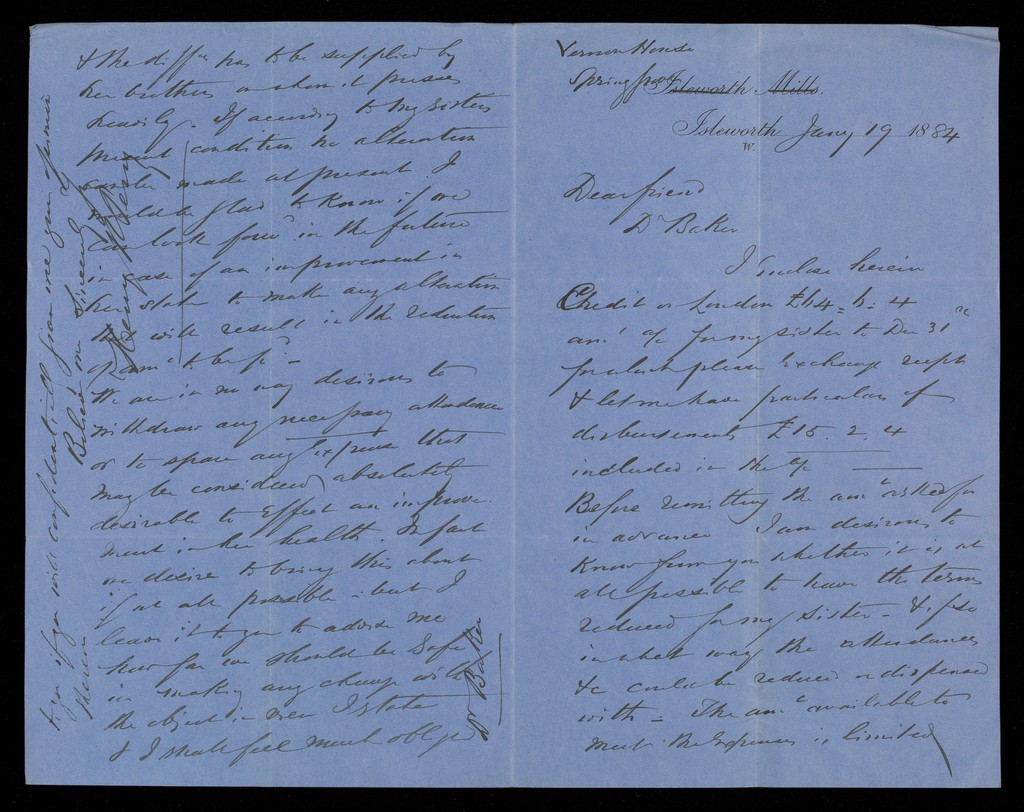 Vernon House
Spring Grove Isleworth Mills.
Isleworth Jany 19 1884
W.
Dear friend
Dr Baker
I enclose herein
Credit on London £64 = 6 : 4
amt a/c for my sister to Dec 31st
for which please exchange receipt
& let me have particulars of
disbursements £15. 2. 4
included in the a/c
Before remitting the amt asked for
in advance I am desirous to
know from you whether it is at
all possible to have the terms
reduced for my sister - & if so
in what way the attendance
&c could be reduced or dispensed
with = The amt available to
meet the expenses is limited
& the diffce has to be supplied by
her brothers on whom it presses
heavily - If according to my sisters
present condition no alteration
can be made at present I
would be glad to know if we
can look forwd in the future
in case of an improvement in
her state to make any alteration
that will result in the reduction
of amt to be pd -
We are in no way desirous to
withdraw any necessary attendance
or to spare any expense that
may be considered absolutely
desirable to effect an improve-
ment in her health. In fact
we desire to bring this about
if at all possible - but I
leave it to you to advise me
how far we should be safe
in making any change with
the object in view I state
& I shall feel much obliged
to you if you will confidentially give me your opinion
thereon
Believe me
Sincerely yrs
Henry
Dr Baker